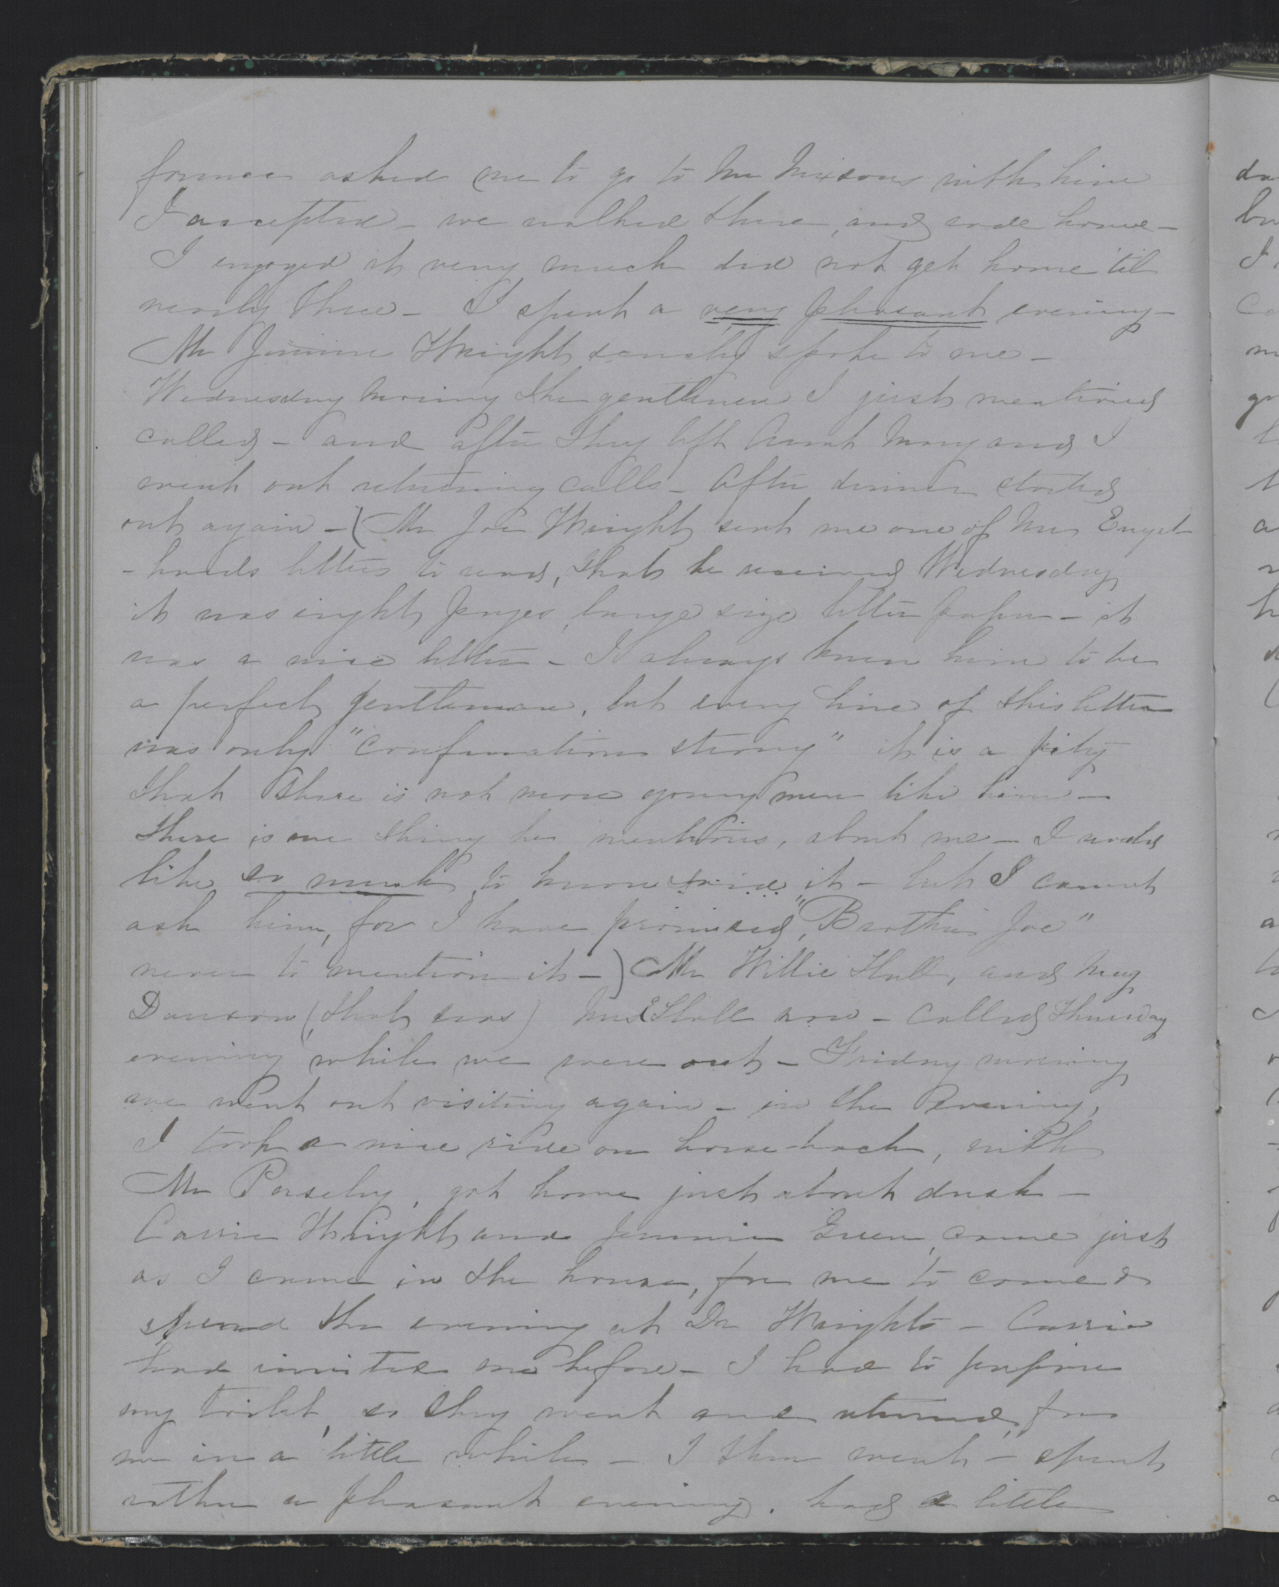 former asked me to go to Mr Mixsons with him
I accepted - we walked there, and rode home -
I enjoyed it very much did not get home 'til
nearly three - I spent a very pleasant evening -
Mr Jimmie Wright scarcely spoke to me -
Wednesday morning the gentlemen I just mentioned
called - and after they left Aunt Mary and I
went out returning calls - After dinner started
out again - (Mr Joe Wright sent me one of Mr Engel-
-hards letters to read, that he received Wednesday
it was eight pages, large size letter paper - it
was a nice letter - I always knew him to be
a perfect gentleman, but every line of this letter
was only "confirmation strong" it is a pity
that there is not more young men like him -
there is one thing he mentions, about me - I would
like so much to know it - but I cannot
ask him, for I have promised, "Brother Joe"
never to mention it -) Mr Willie Hall, and May
Dawson (that was) Mrs Hall now - called Thursday
evening while we were out - Friday morning
we went out visiting again - in the evening,
I took a nice ride on horse-back, with
Mr Parsley, got home just about dusk -
Carrie Wright and Jimmie Green, came just
as I came in the house, for me to come &
spend the evening at Dr Wrights - Carrie
had invited me before - I had to prepare
my toilet, so they went and returned for
me in a little while - I then went - spent
rather a pleasant evening. had a little